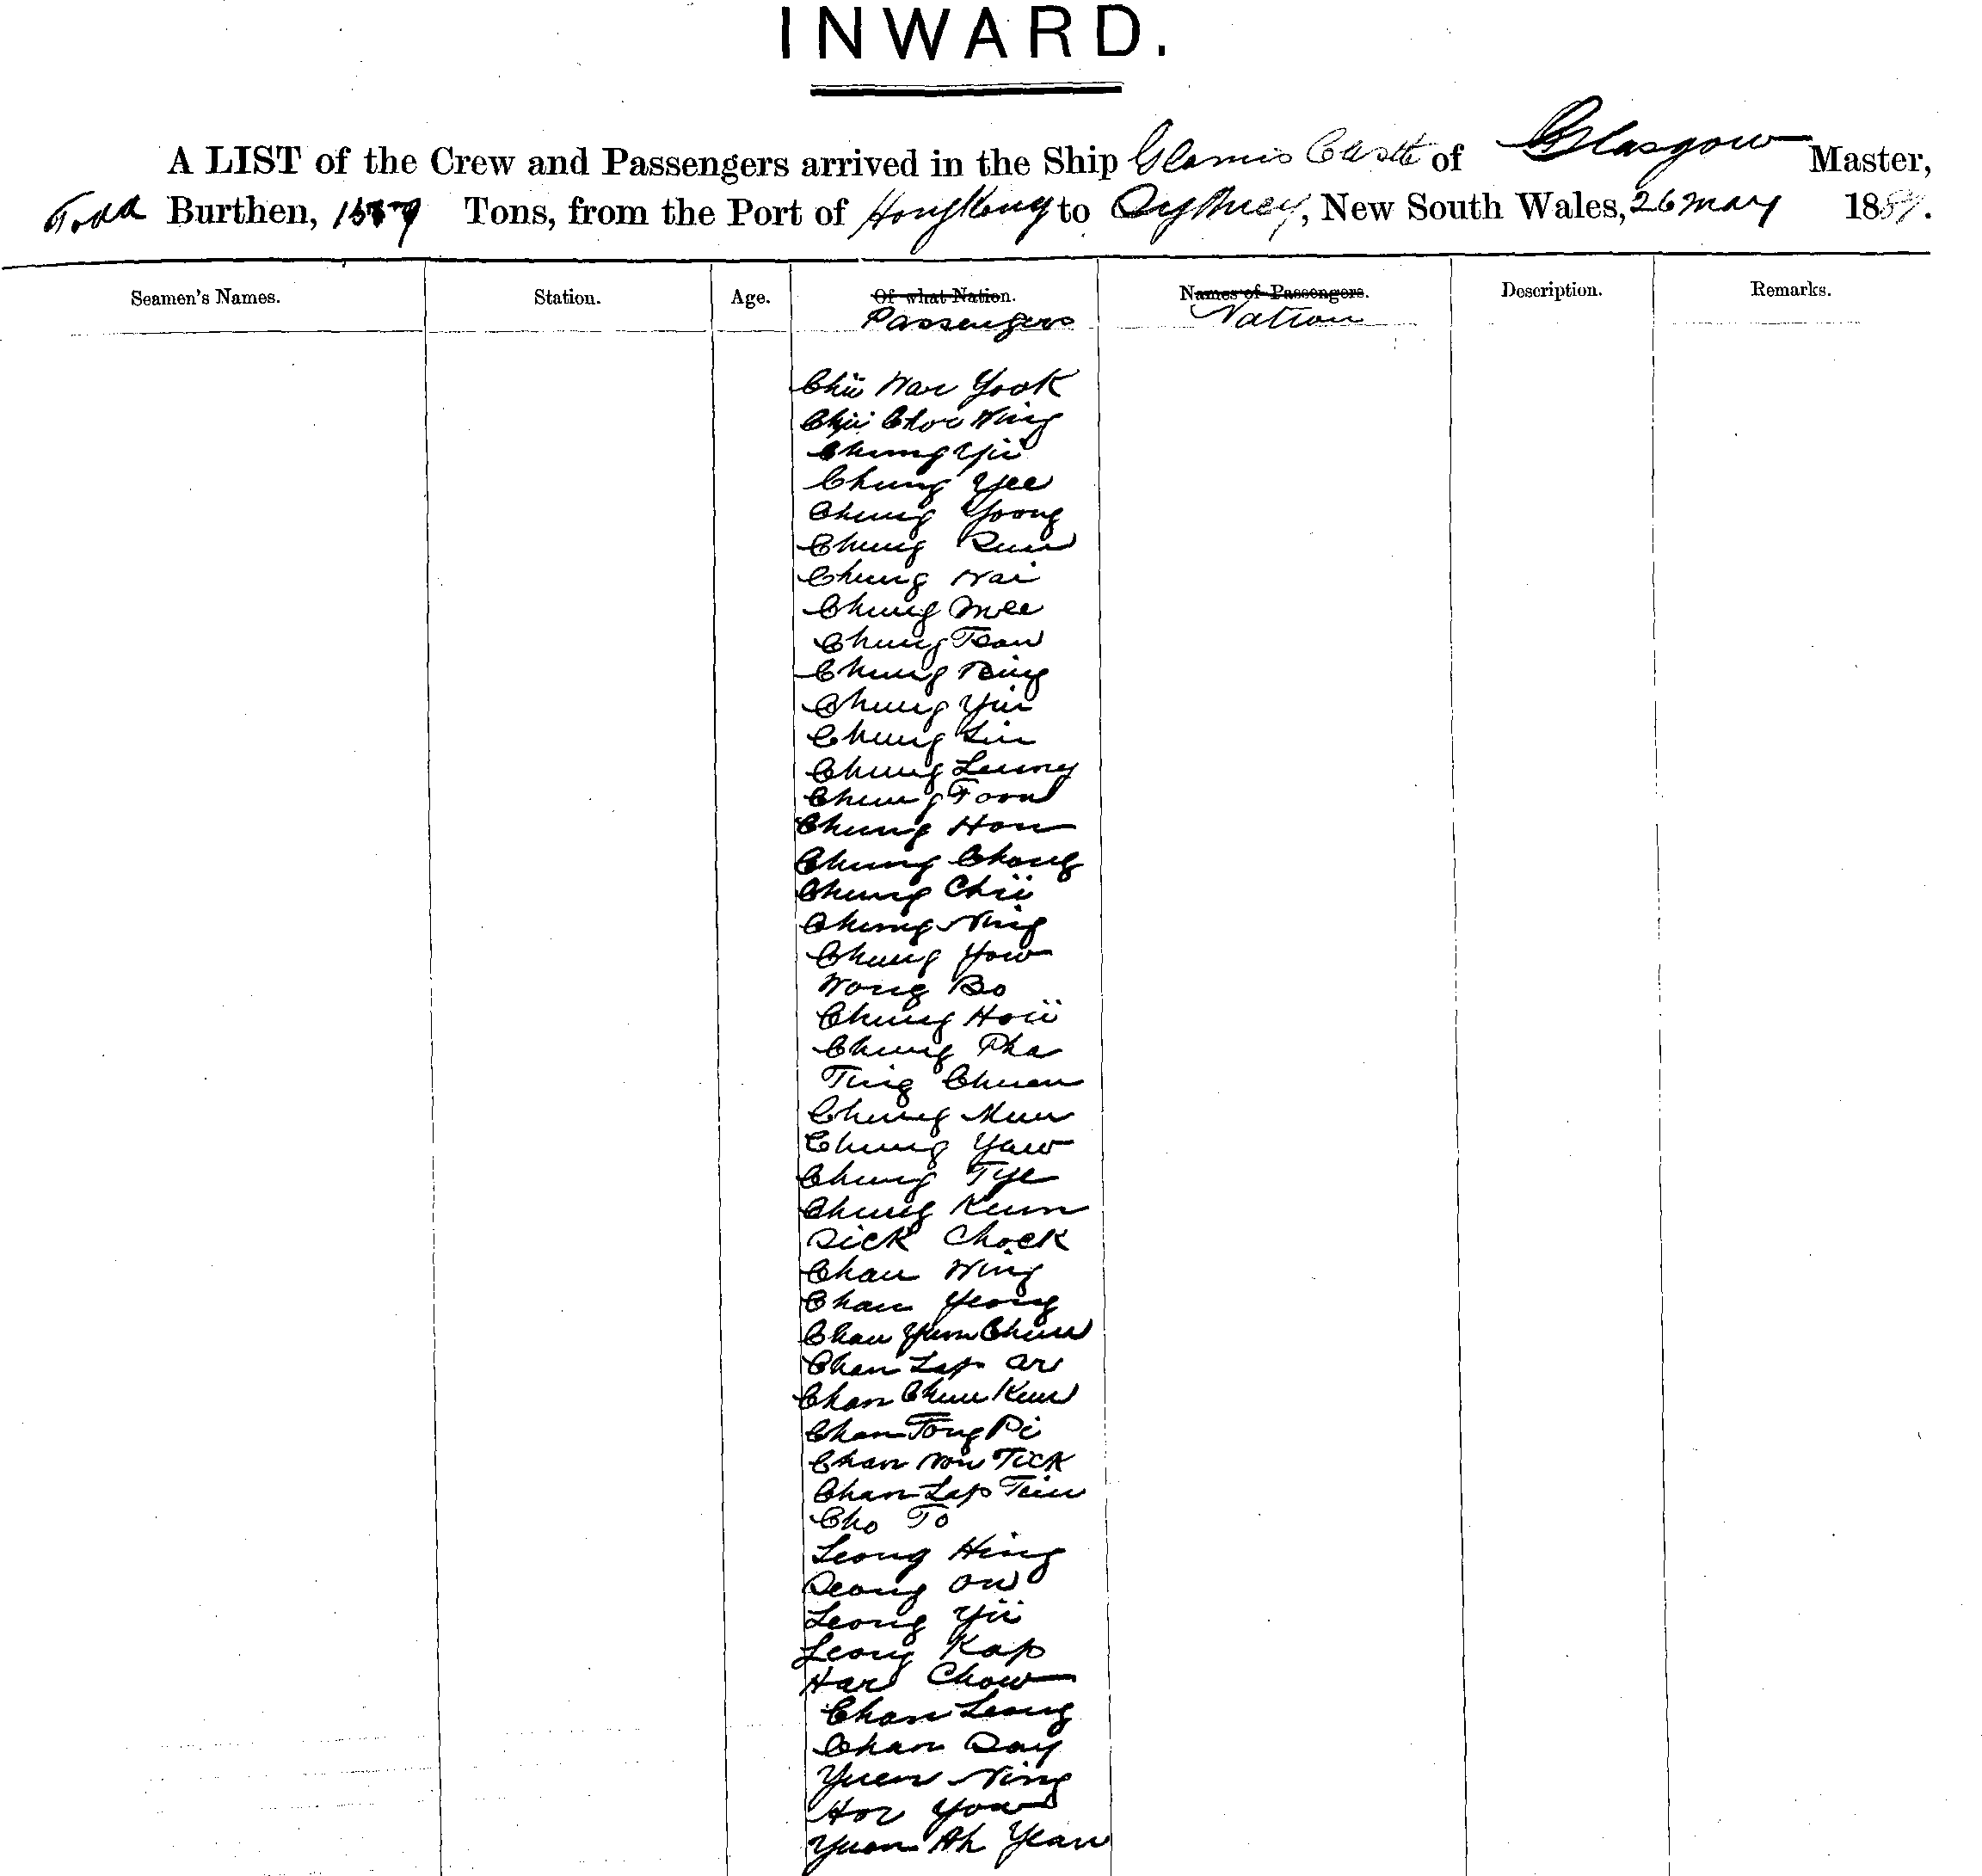 INWARD.
A LIST of the Crew and Passengers arrived in the Ship Glamis Castle of Glasgow Master,
Todd Burthen, 1559 Tons, from the Port of Hong Kong to Sydney, New South Wales, 26 May 188
Seamen's Names. Station. Age. Of what Nation. Names of Passengers. Description. Remarks.
Passengers Nation
Chü War Yook
Chü Choe Wing
Chung Yü
Chung Yee
Chung Yoong
Chung
Chung Wai
Chung Mee
Chung Tsan
Chung
Chung Yin
Chung Lin
Chung Leung
Chung Foon
Chung Hon
Chung Chong
Chung Chü
Chung Ning
Chung How
Wong Bo
Chung Hoü
Chung Pha
Ting Chuen
Chung Mun
Chung Yaw
Chung Tye
Chung Keun
Sick Chock
Chan Wing
Chan Yeong
Chan Yum Chun
Chan Lap
Chan Chun Kun
Chan Tong Pi
Chan Tick
Chan Lap
Cho To
Leong Hing
Leong On
Leong Yü
Leong Kap
Har Chow
Chan Leong
Chan Day
Yuen Ning
Hor You
Yuan Ah Yean